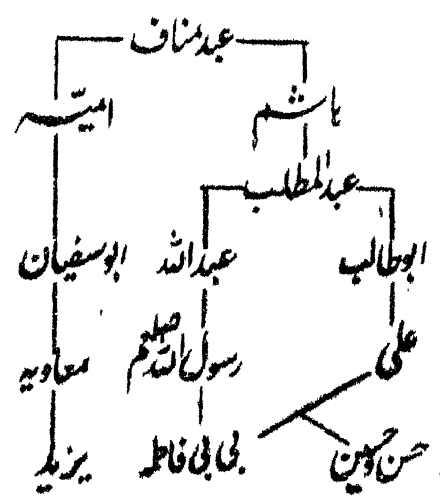 عبد مناف
ہاشم امیّہ
عبدالمطلب
ابوطالب عبداللہ ابوسفیان
علی رسول اللہ صلعم معاویہ
حسن و حسین بی بی فاطمہ یزید